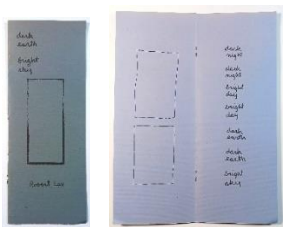 dark
earth
bright
sky
Robert Lax
dark
night
dark
night
bright
day
bright
day
dark
earth
dark
earth
bright
sky